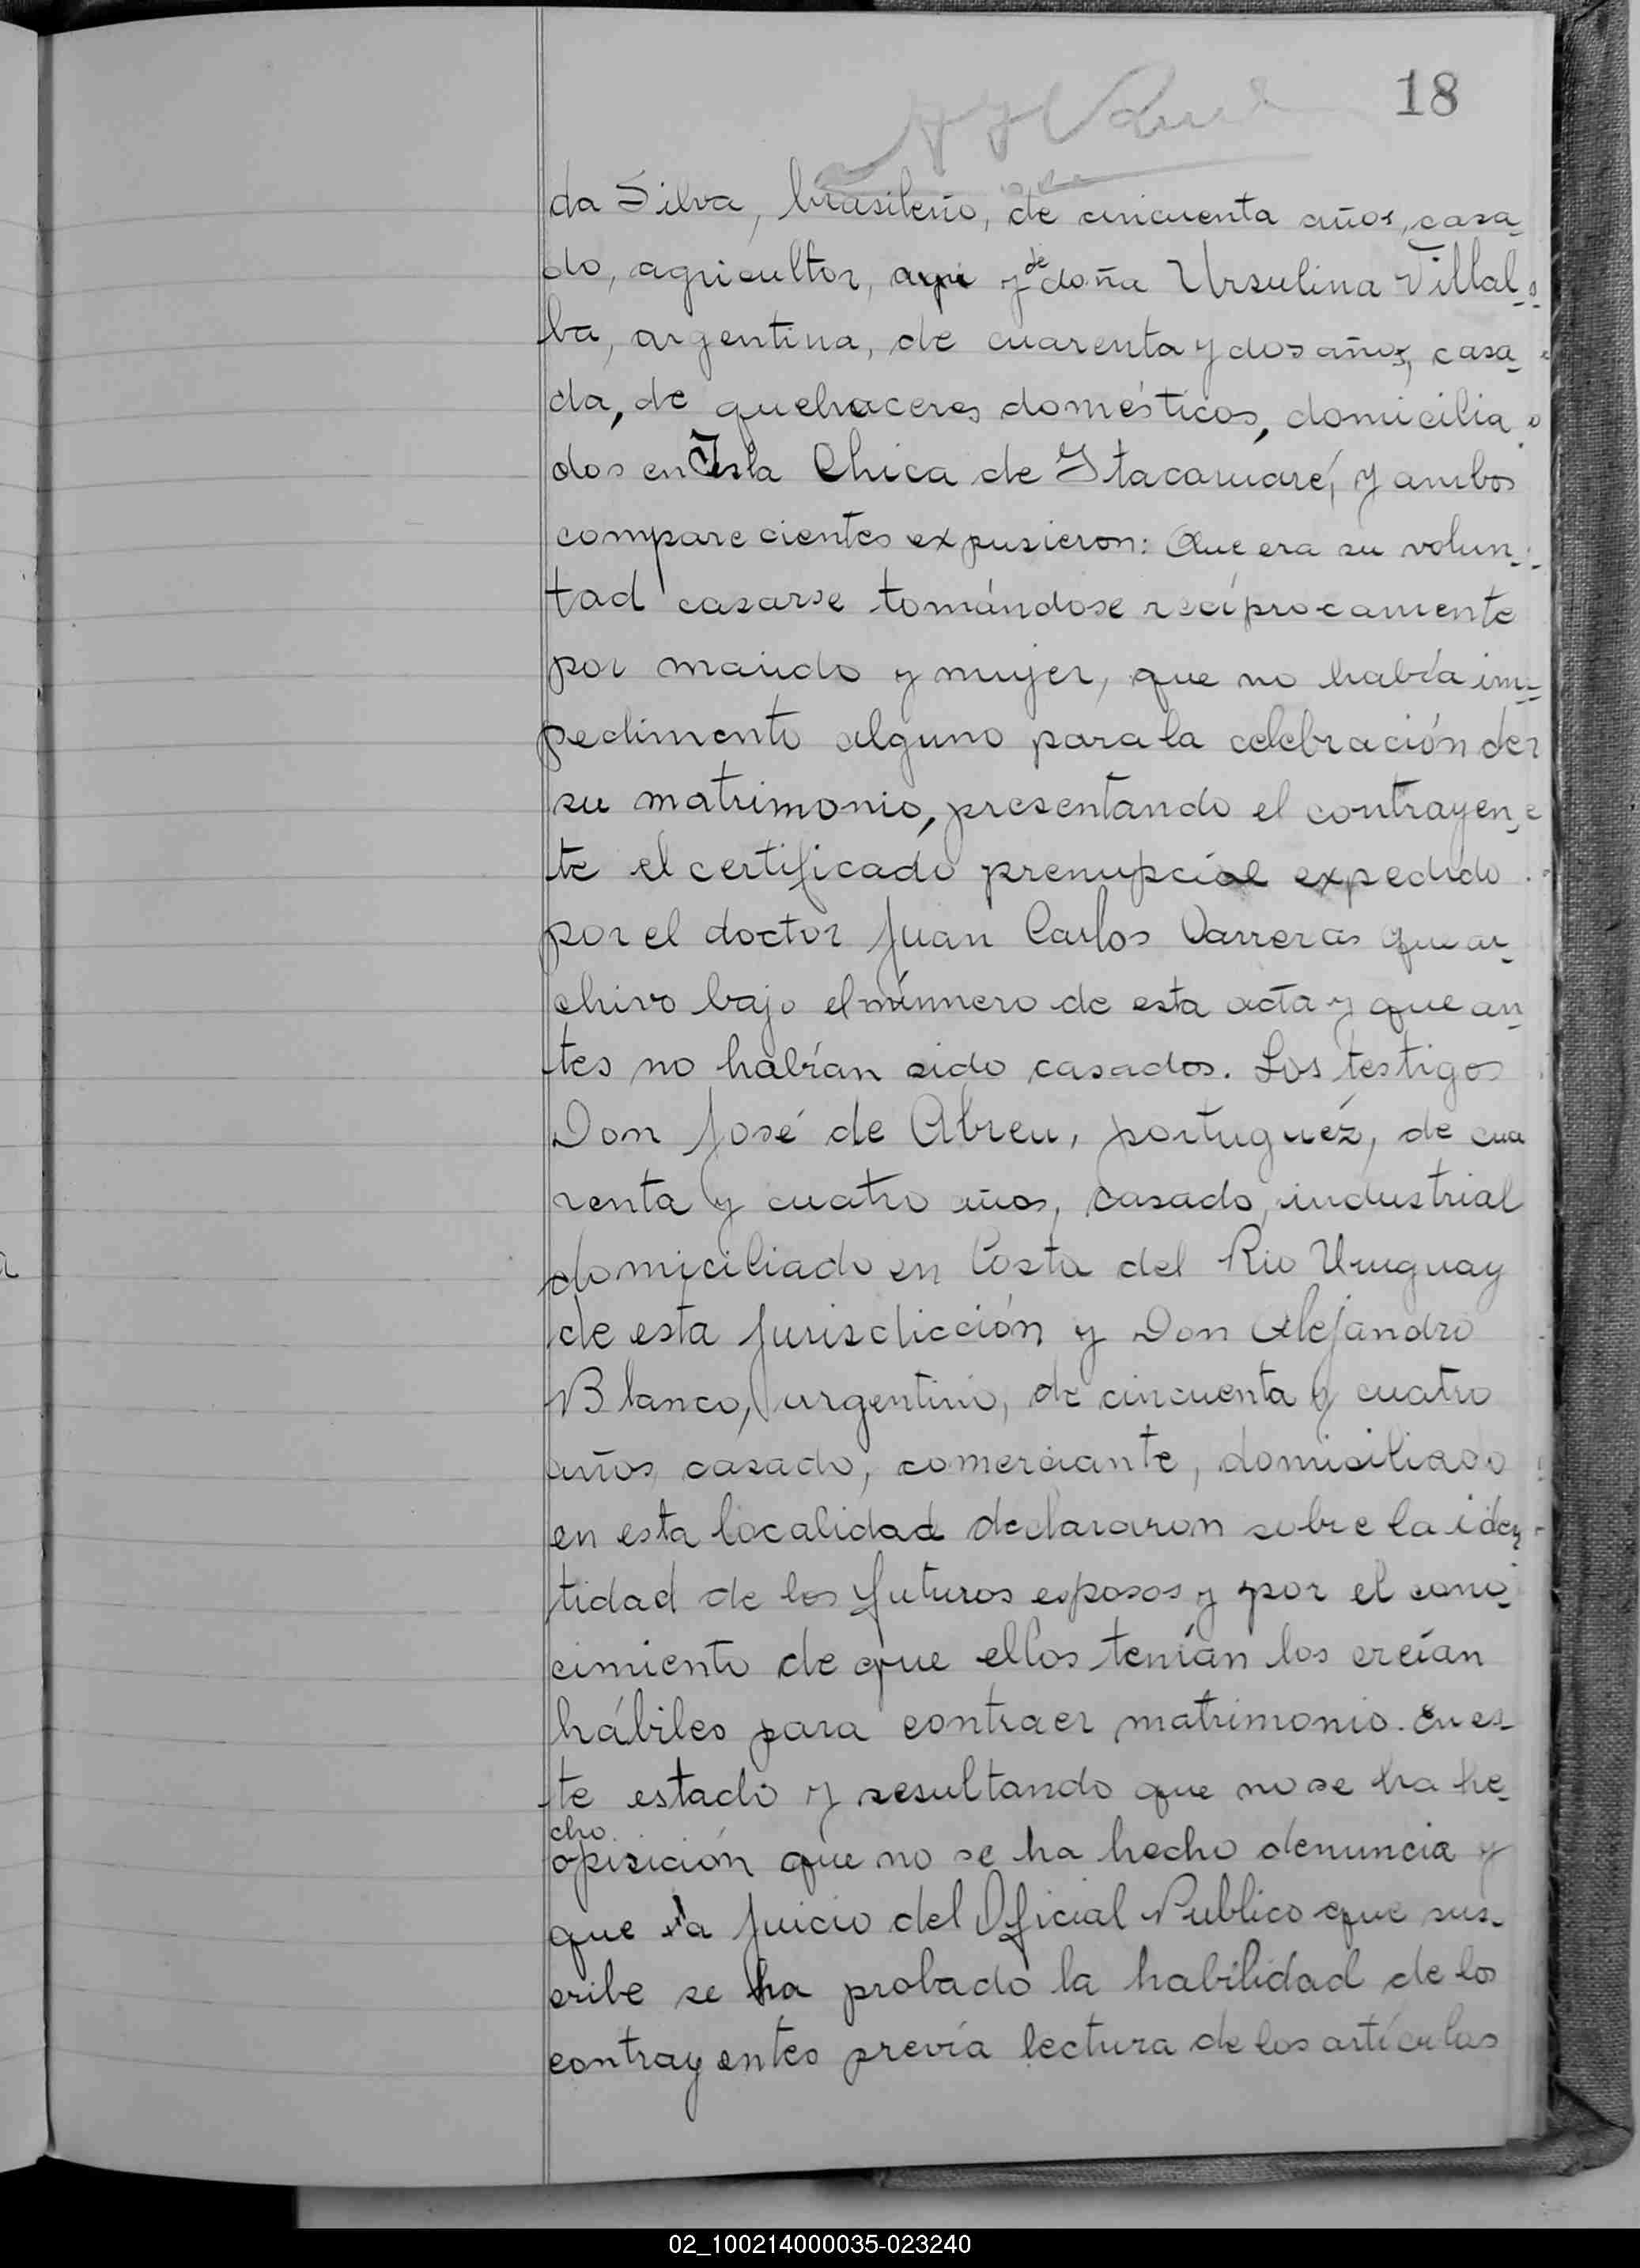 18
da Silva, brasileño, de cincuenta años, casa-
do, agricultor, aqui y de doña Ursulina Villal-
ba, argentina, de cuarenta y dos años, casa-
da, de quehaceres domésticos, domicilia-
dos en Isla Chica de Itacaruaré, y ambos
comparecientes expusieron: Que era su volun-
tad casarse tomándose recíprocamente
por marido y mujer, que no había im-
pedimento alguno para la celebración de
su matrimonio, presentando el contrayen-
te el certificado prenupcial expedido
por el doctor Juan Carlos Carreras que ar-
chivo bajo el número de esta acta y que an-
tes no habían sido casados. Los testigos
Don José de Abreu, portuguéz, de cua
renta y cuatro años, casado, industrial
domiciliado en Costa del Rio Uruguay
de esta Jurisdicción y Don Alejandro
Blanco, argentino, de cincuenta y cuatro
años, casado, comerciante, domiciliado
en esta localidad declararon sobre la iden-
tidad de los futuros esposos y por el cono-
cimiento de que ellos tenían los creían
hábiles para contraer matrimonio. En es-
te estado y resultando que no se ha he-
cho
oposición que no se ha hecho denuncia y
que a Juicio del Oficial Publico que sus-
cribe se ha probado la habilidad de los
contrayentes previa lectura de los artículos
02_100214000035-023240